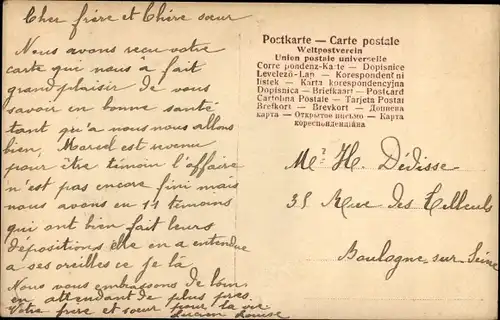 Cher frère et Chère sœur
Nous avons recu votre
carte qui nous à fait
grand plaisir de vous
savoir en bonne santé
tant qu'a nous nous allons
bien, Marcel est revenu
pour être témoin l'affaire
n'est pas encore fini mais
nous avons eu 11 témoins
qui ont bien fait leurs
dépositions elle en a entendue
a ses oreilles ce je là
Nous vous embrassons de loin
en attendant de plus pres.
Votre frere et sœur pour la vie
Lucien Louise
Postkarte — Carte postale
Weltpostverein
Union postale universelle
Corre pondenz-Karte — Dopisnice
Levelező-Lap — Korespondent ni
listek — Karta korespondencyjna
Dopisnica — Briefkaart — Postcard
Cartolina Postale — Tarjeta Postal
Brefkort — Brevkort — Дописна
карта — Открытое письмо — Карта
кореспонденційна
Mr H. Dédisse
35 Rue des Tilleuls
Boulogne sur Seine